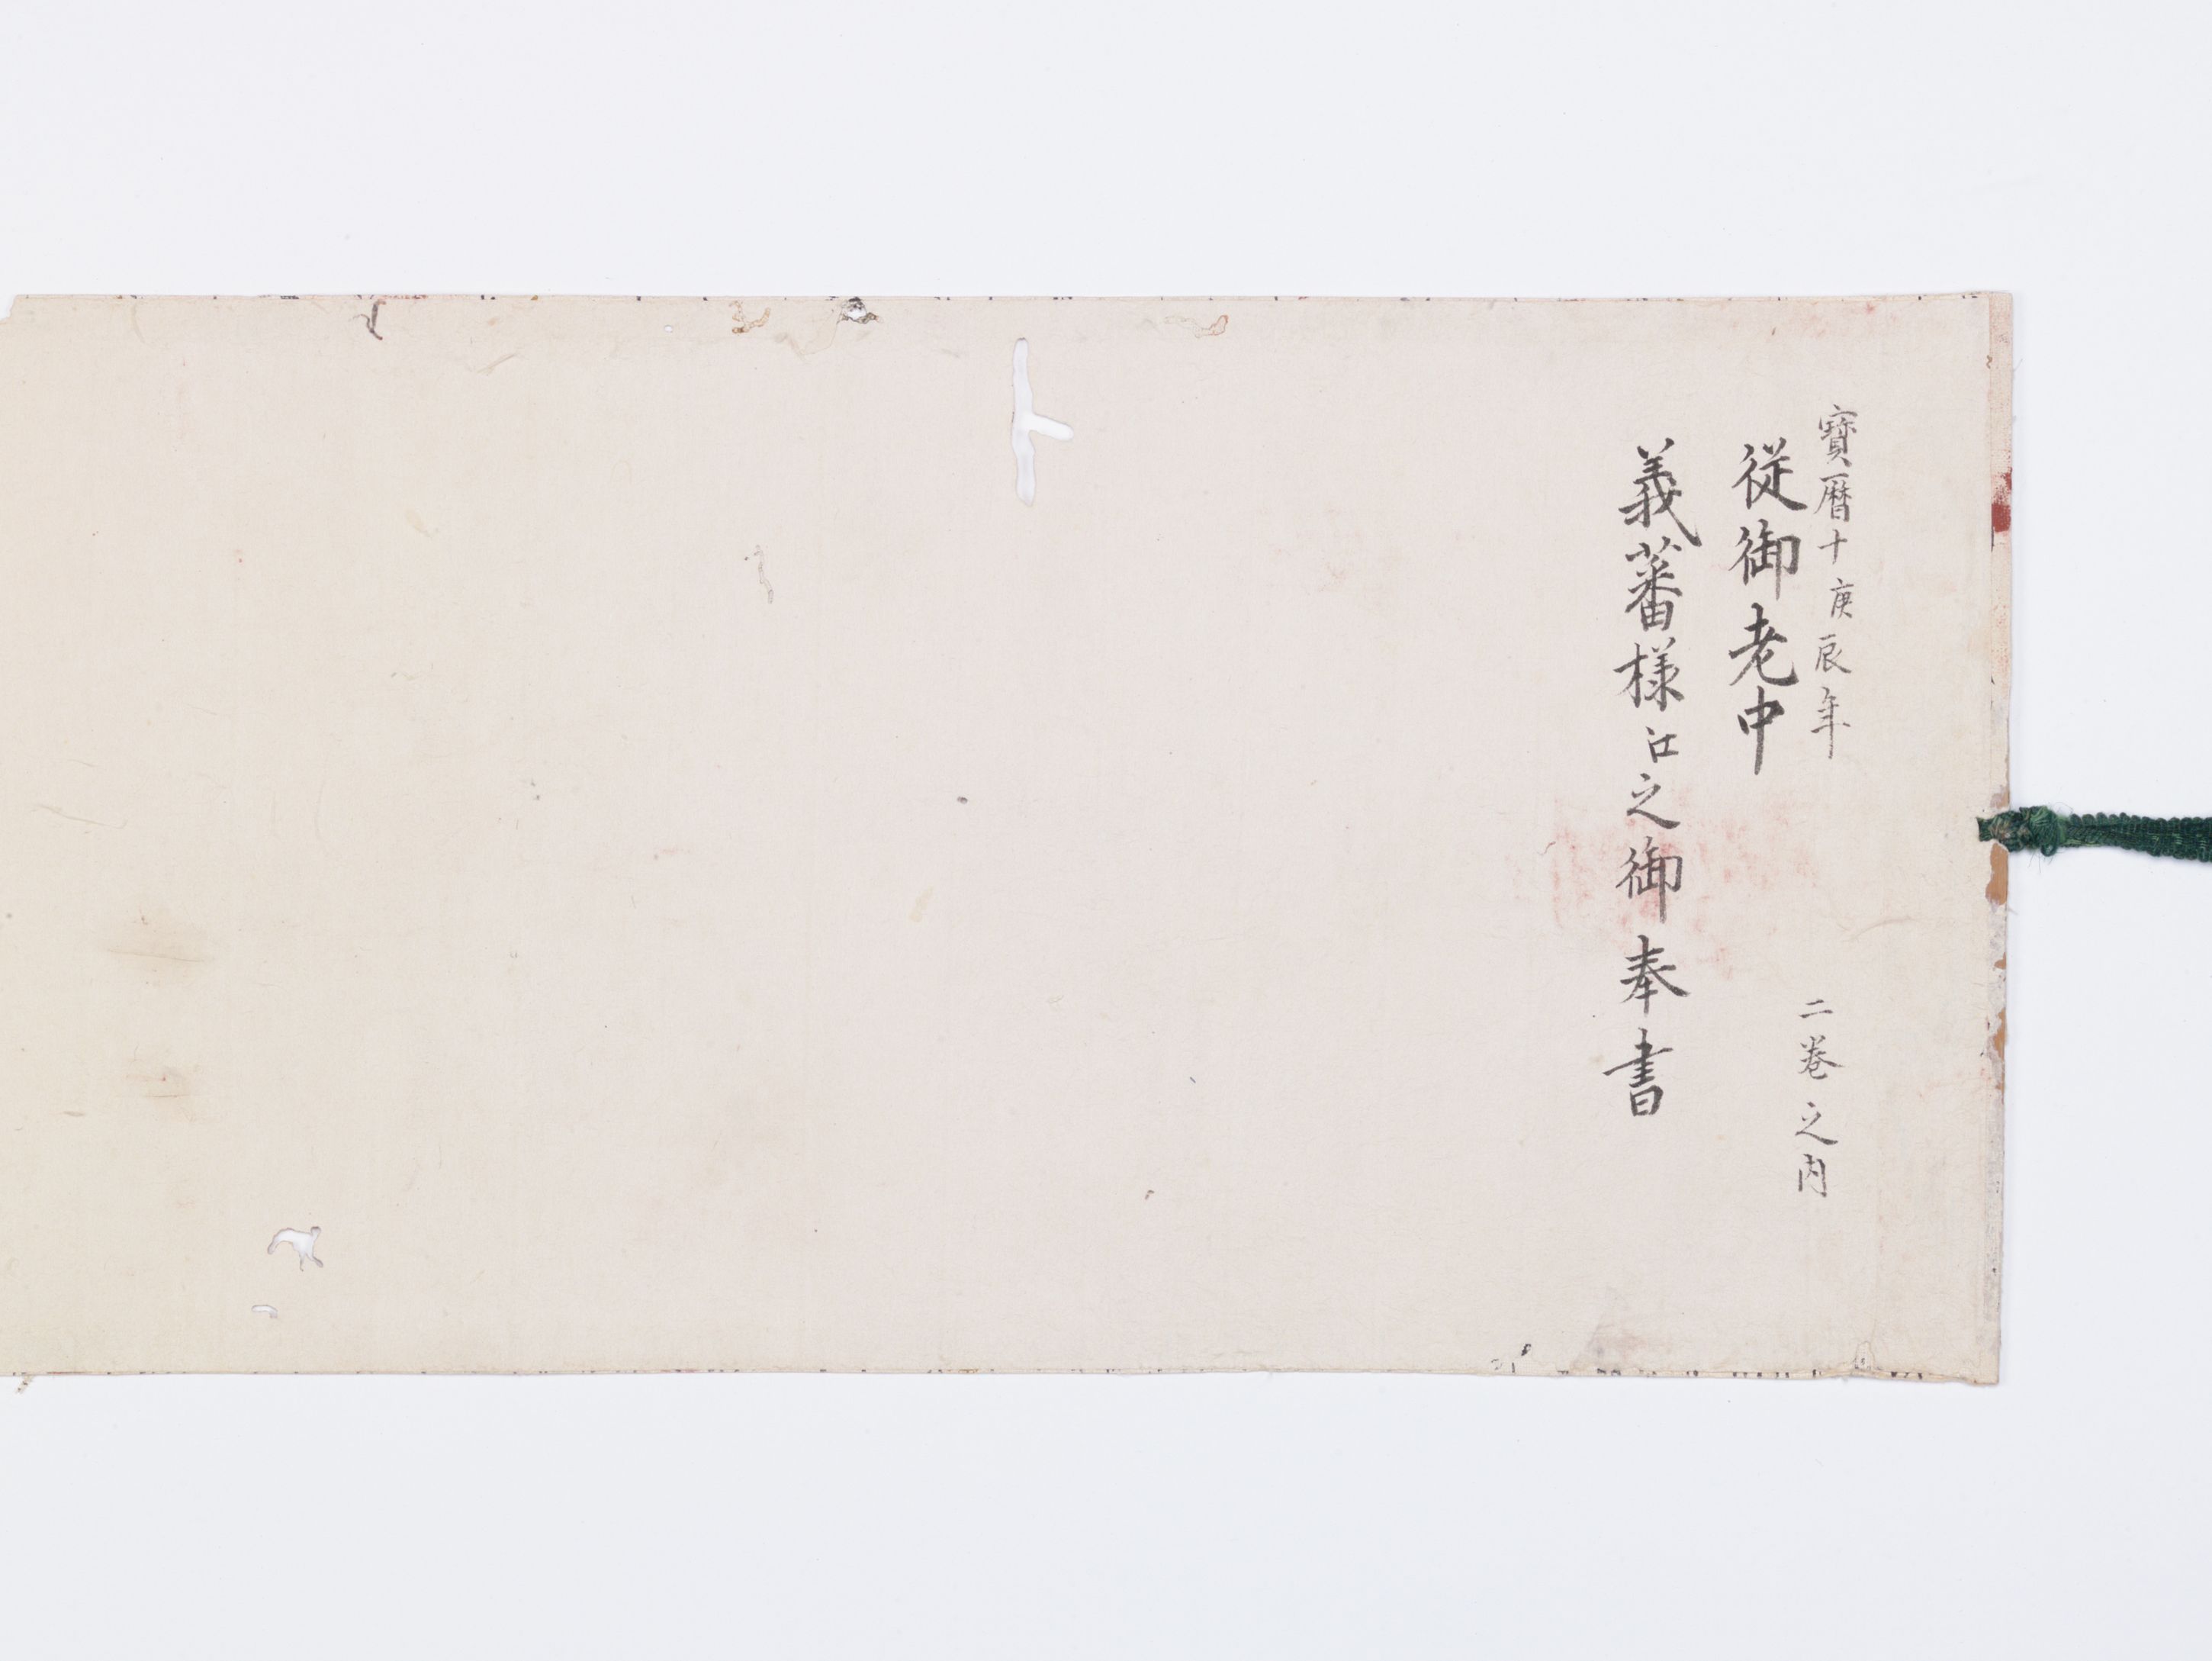 寶暦十庚辰年
二巻之内
従御老中
義蕃様江之御奉書